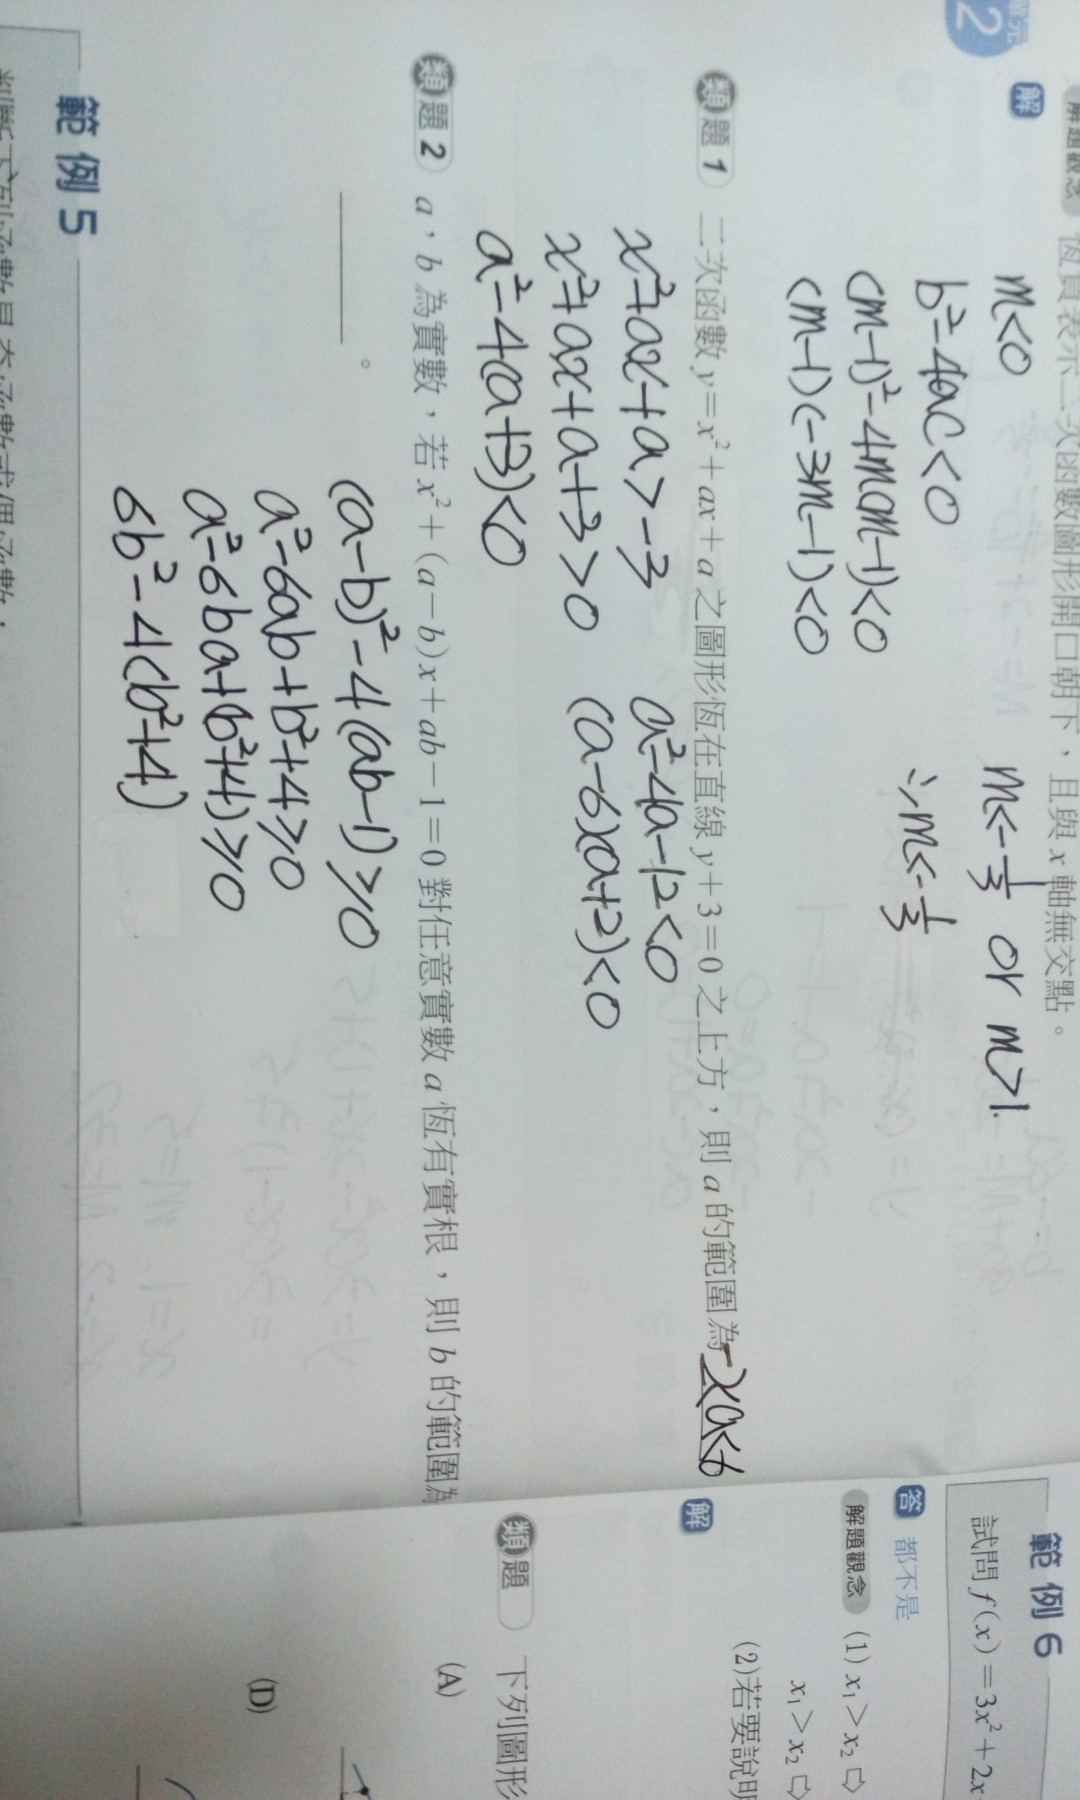 單元
2
解題觀念 恆負表示二次函數圖形開口朝下、且與 x 軸無交點。
解
m<0
b²-4ac<0
(m-1)²-4m(m-1)<0
(m-1)(-3m-1)<0
m<-1/3 or m>1.
∴m<-1/3
類題1 二次函數 y=x²+ax+a 之圖形恆在直線 y+3=0 之上方，則 a 的範圍為 -2<a<6
x²+ax+a>-3
x²+ax+a+3>0
a²-4(a+3)<0
a²-4a-12<0
(a-6)(a+2)<0
類題2 a，b 為實數，若 x²+(a-b)x+ab-1=0 對任意實數 a 恆有實根，則 b 的範圍為
。
(a-b)²-4(ab-1)≥0
a²-6ab+b²+4≥0
a²-6ba+(b²+4)≥0
6b²-4(b²+4)
範例5
判斷下列函數是奇函數或偶函數：
範例6
試問 f(x)=3x²+2x
答 都不是
解題觀念 (1) x₁>x₂ ⇨
x₁>x₂ ⇨
(2)若要說明
解
類題 下列圖形
(A)
(D)